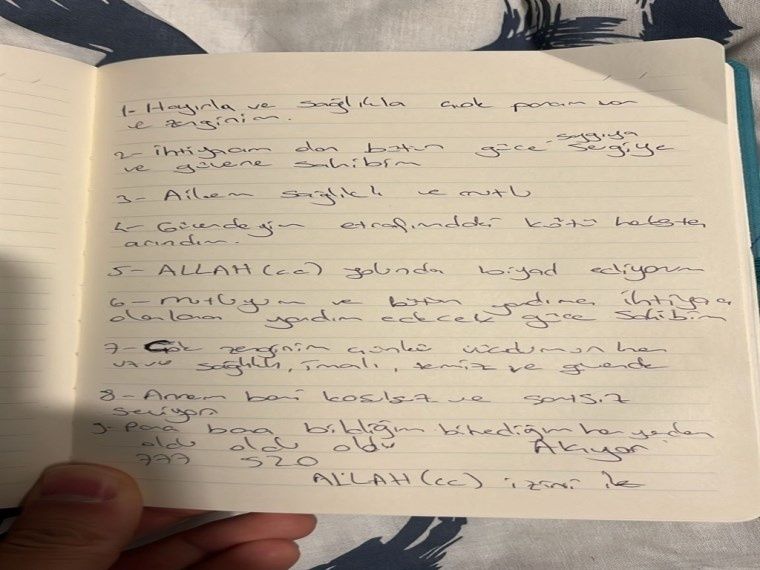 1- Hayırla ve sağlıkla çok param var
ve zenginim.
2- ihtiyacım olan bütün güce saygıya sevgiye
ve güvene sahibim
3- Ailem sağlıklı ve mutlu
4- Güvendeyim etrafımdaki kötü
arındım.
5- ALLAH (cc) yolunda ediyorum
6- mutluyum ve bütün yardıma ihtiyacı
olanlara yardım edecek güce sahibim
7- Çok zenginim çünkü vücudumun her
sağlıklı, temiz ve güvende
8- Annem beni koşulsuz ve şartsız
seviyor
9- Para bana bildiğim bilmediğim her yerden
oldu oldu oldu Akıyor
777 520
ALLAH (cc) izini ile